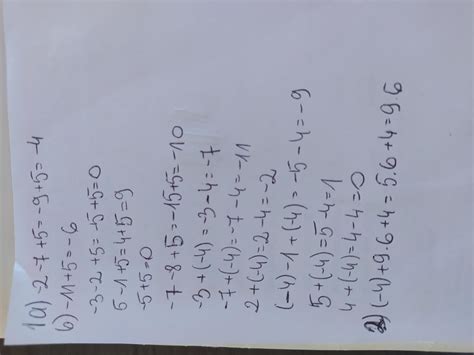 1a) -2-7+5=-9+5=-4
b) -11+5=-6
-3-2+5=-5+5=0
5-1+5=4+5=9
-5+5=0
-7-8+5=-15+5=-10
-3+(-4)=-3-4=-7
-7+(-4)=-7-4=-11
2+(-4)=2-4=-2
(-4)-1+(-4)=-5-4=-9
5+(-4)=5-4=1
4+(-4)=4-4=0
2) (-4)+9.6=5.6+4=9.6